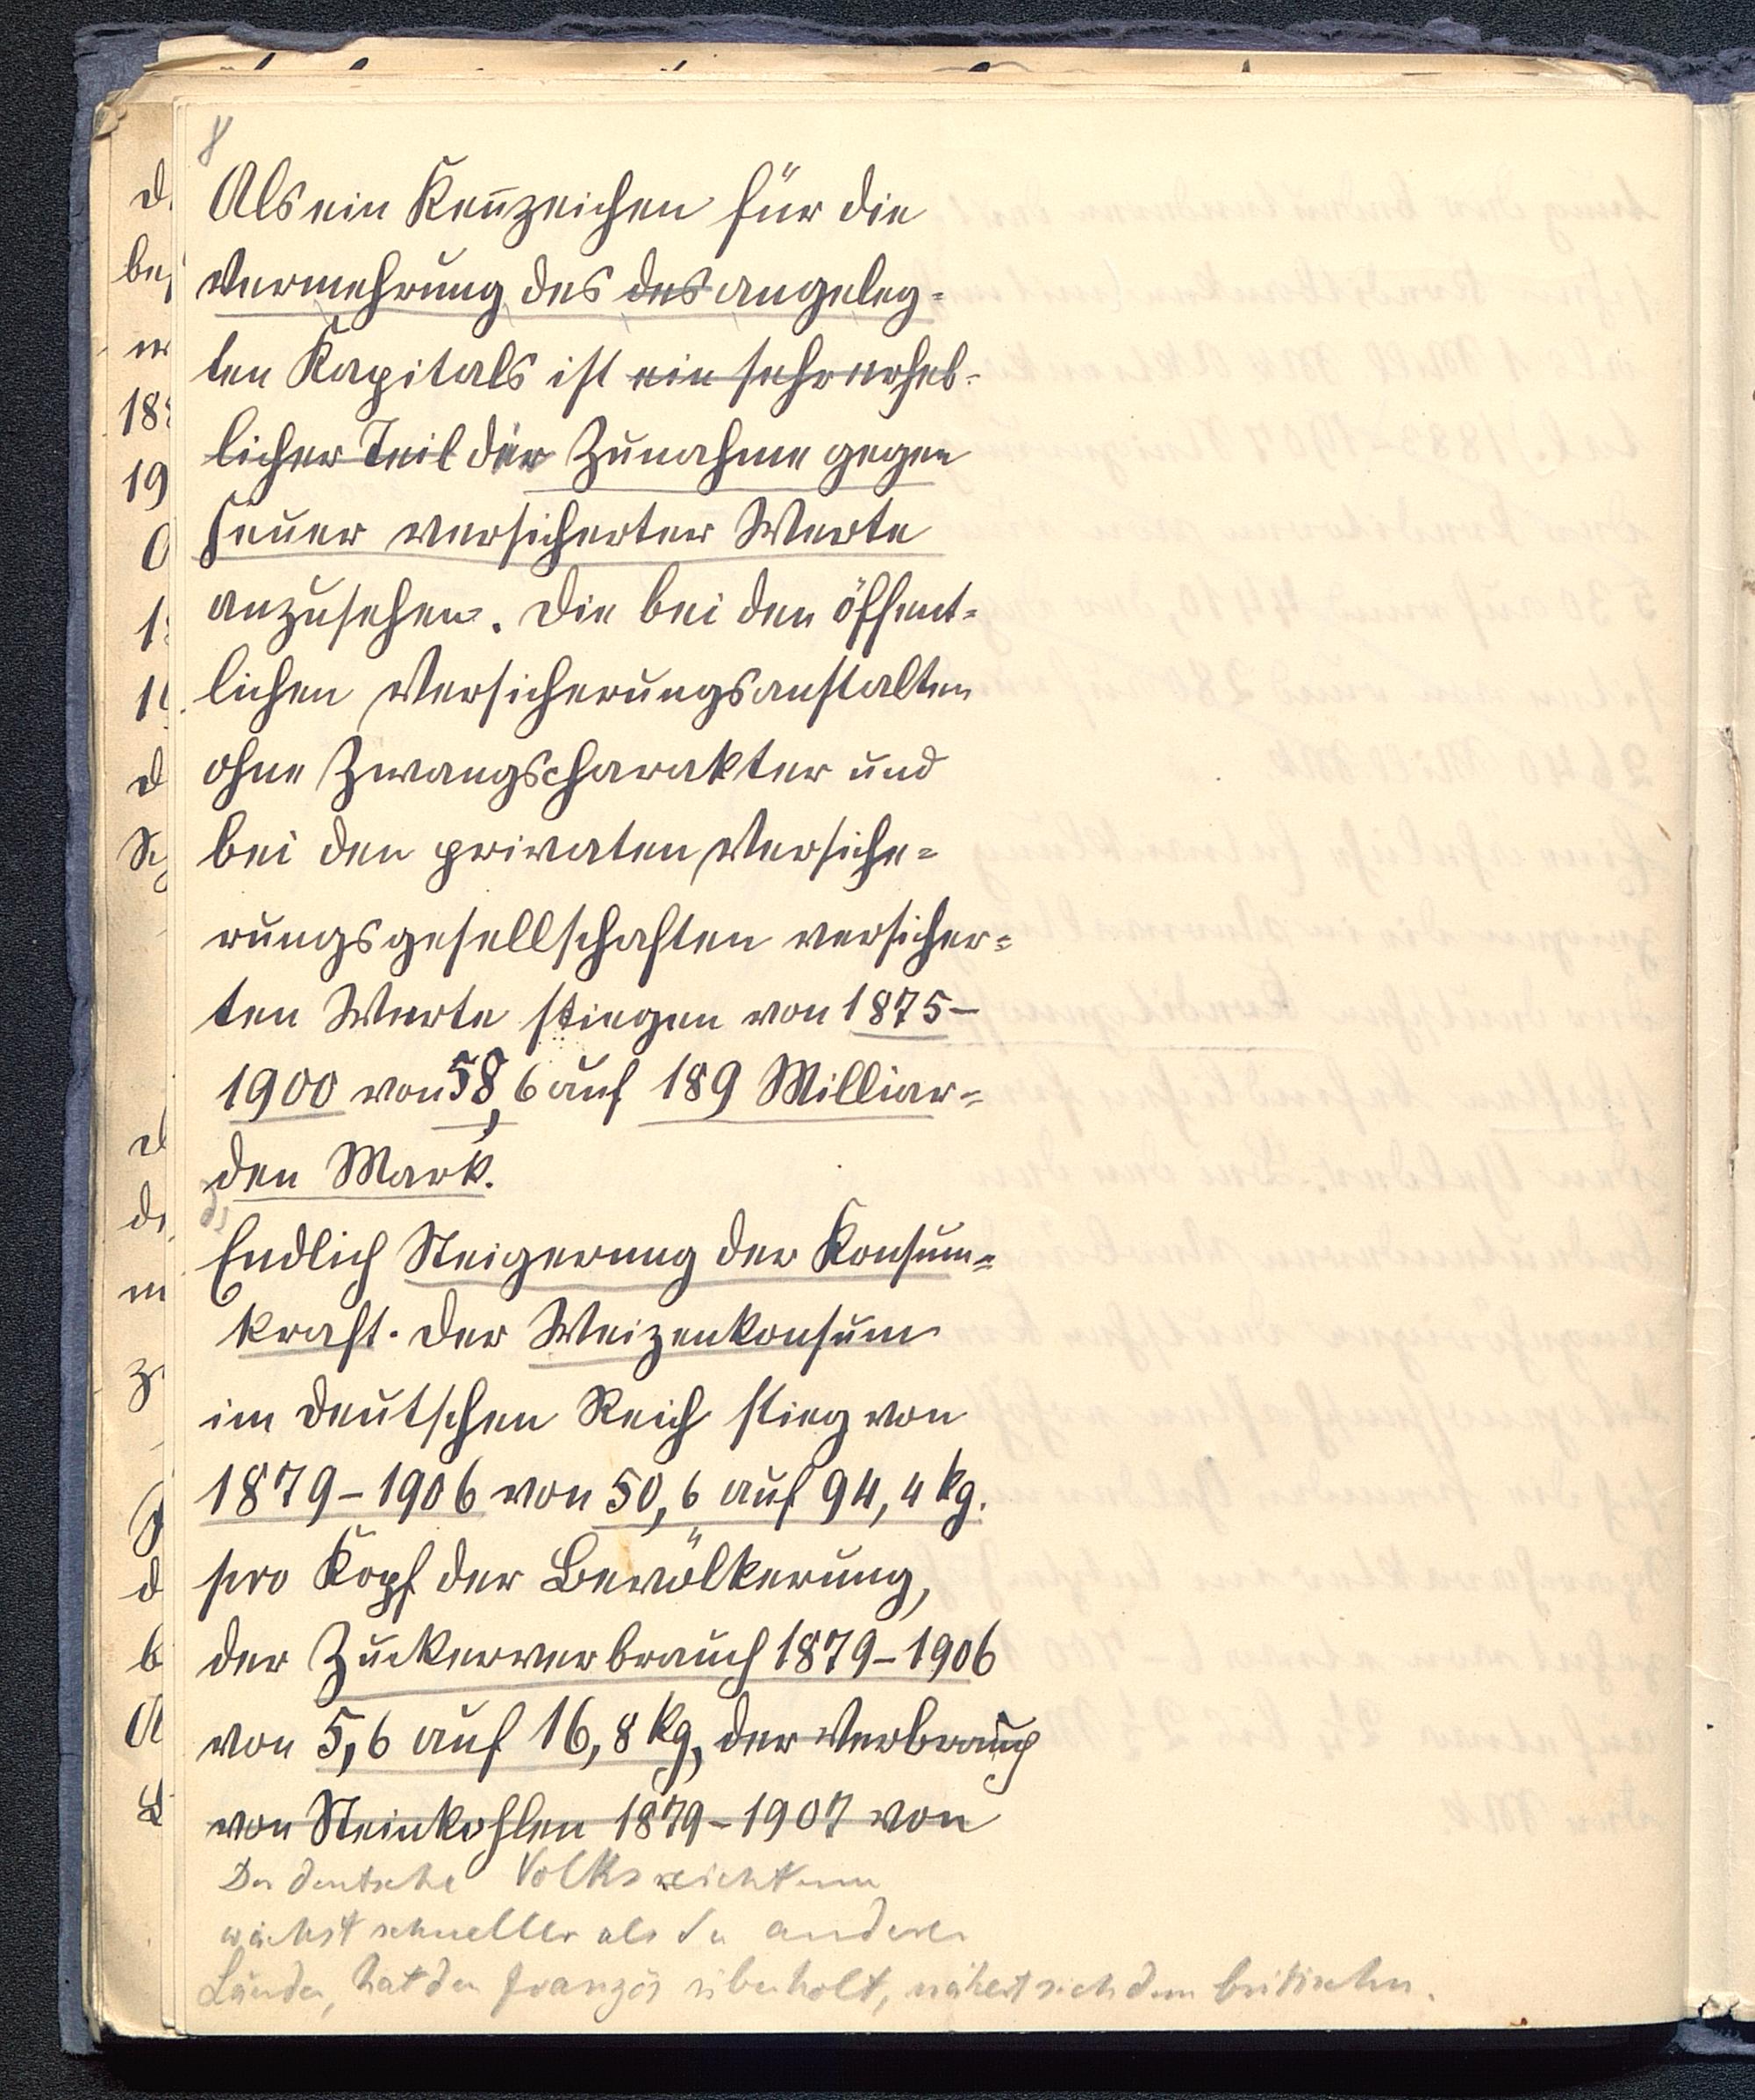 8
Als ein Kennzeichen für die
Vermehrung des des angeleg-
ten Kapitals ist ein sehr erheb-
licher Teil der Zunahme gegen
Feuer versicherter Werte
anzusehen. Die bei den öffent-
lichen Versicherungsanstalten
ohne Zwangscharakter und
bei den privaten Versiche-
rungsgesellschaften versicher-
ten Werte stiegen von 1875-
1900 von 58,6 auf 189 Milliar-
den Mark.
Endlich Steigerung der Konsum-
kraft. Der Weizenkonsum
im Deutschen Reich stieg von
1879-1906 von 50,6 auf 94,4 kg.
pro Kopf der Bevölkerung,
der Zuckerverbrauch 1879-1906
von 5,6 auf 16,8 kg, der Verbrauch
von Steinkohlen 1879-1907 von
Der deutsche Volksreichtum
wächst schneller als der anderer
Länder, hat den französ überholt, nähert sich dem britischen.